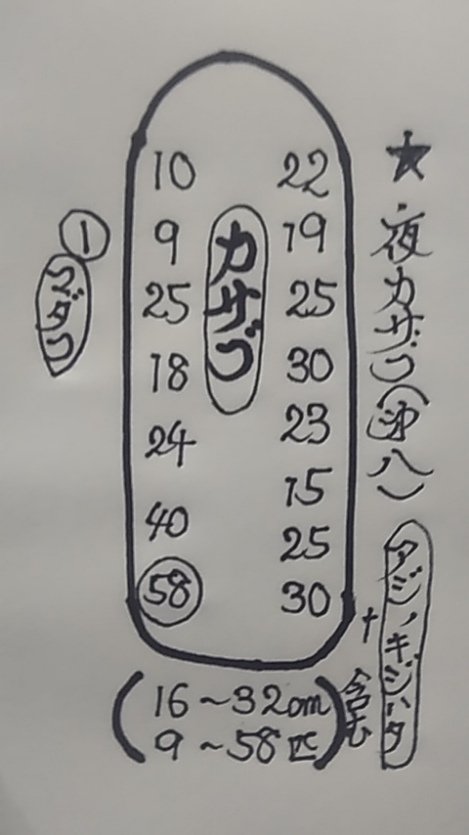 ★・夜カサゴ(沖八)
アジ、キジハタ
+
含む
10 22
9 19
25 25
18 30
24 23
40 15
58 25
30
カサゴ
①マダコ
(16~32cm
9~58匹)